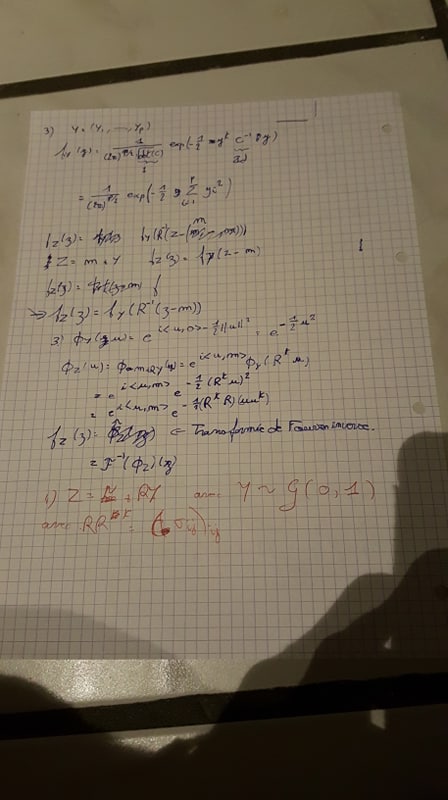 3) Y = (Y1, ..., Yp)
fY(y) = 1/((2π)^p/2 √det(C)) exp(-1/2 y^t C^-1 y)
= 1/(2π)^p/2 exp(-1/2 Σ yi²)
fZ(z) = fY(R^-1(z-m))
Z = m + Y fZ(z) = fY(z-m)
fZ(z) =
=> fZ(z) = fY(R^-1(z-m))
3) ΦY(u) = e^i<u,m> - 1/2||u||² = e^-1/2 u²
ΦZ(u) = Φm+RY(u) = e^i<u,m> ΦY(R^t u)
= e^i<u,m> e^-1/2 (R^t u)²
= e^i<u,m> e^-1/2 (R^t R)(uu^t)
fZ(z) = ← Transformée de Fourier inverse.
= F^-1(ΦZ)(z)
1) Z = + RY avec Y ~ G(0,1)
avec RR^t = (σij)ij